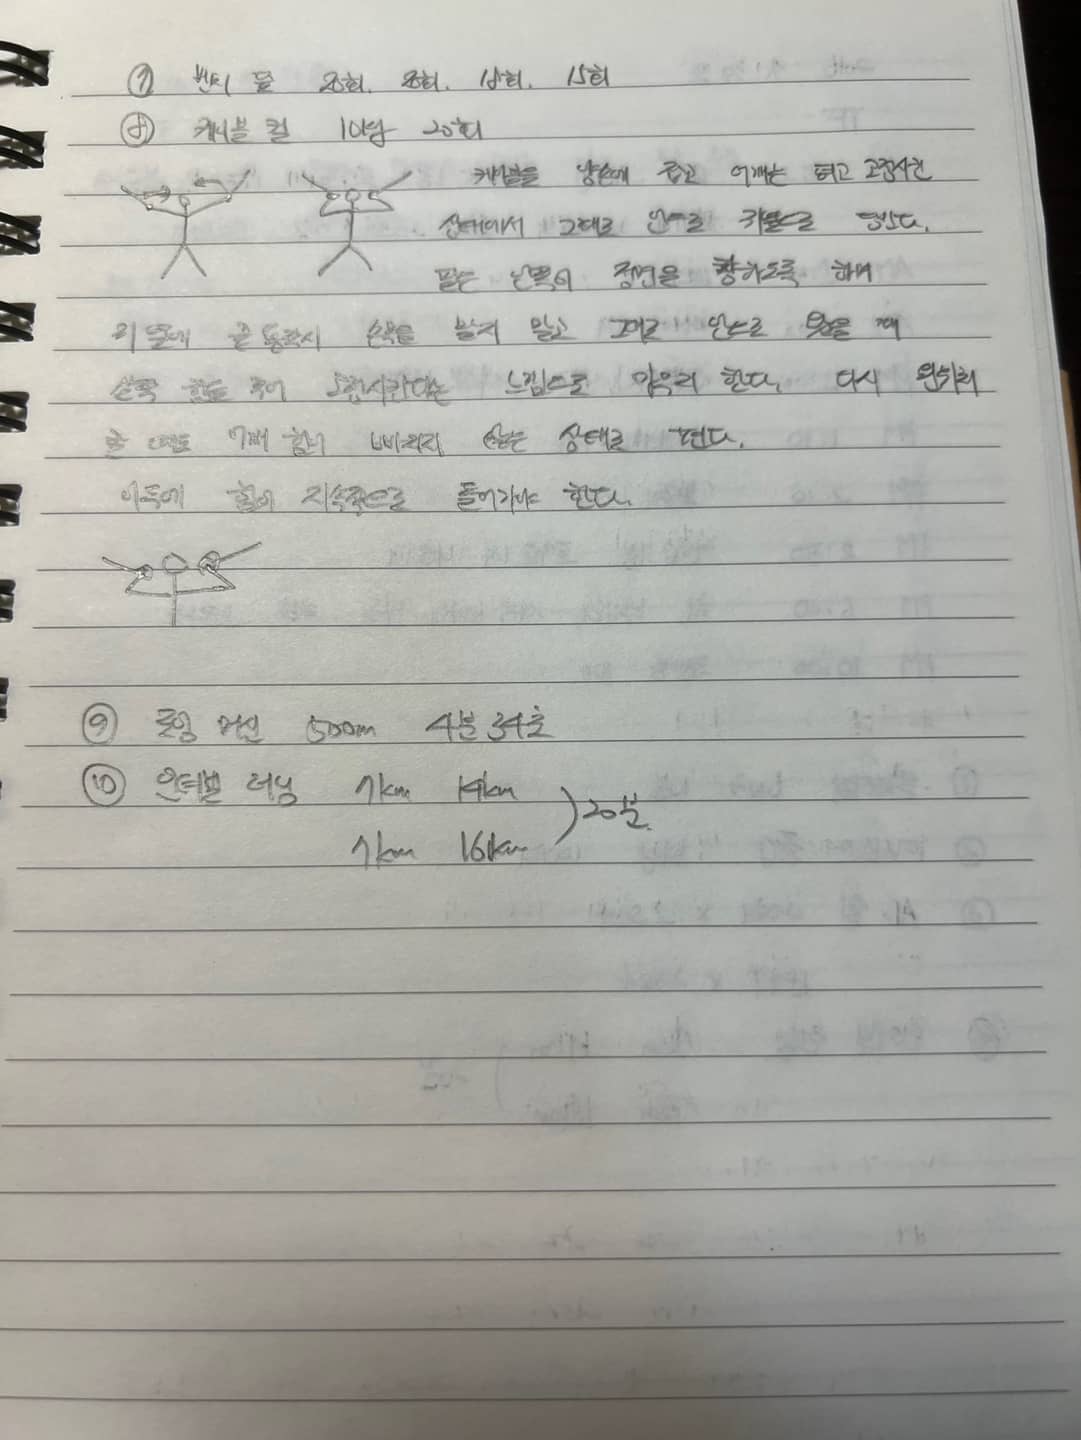 ⑦ 번지 돌 20회. 20회. 15회. 15회
⑧ 케이블 컬 10남 20회
케이블을 양손에 잡고 어깨는 펴고 고정시킨
상태에서 그대로 안으로 귀쪽으로 당긴다.
팔은 정면을 향하도록 하며
손목을 말지 말고 그대로 안으로 왔을 때
손목 힘을 주어 고정시킨다는 느낌으로 마무리 한다. 다시 원위치
어깨 힘이 빠지지 않는 상태로 편다.
이두에 힘이 지속적으로 들어가야 한다.
⑨ 로잉 머신 500m 4분 34초
⑩ 인터벌 러닝 7km 14km
7km 16km ) 20분.